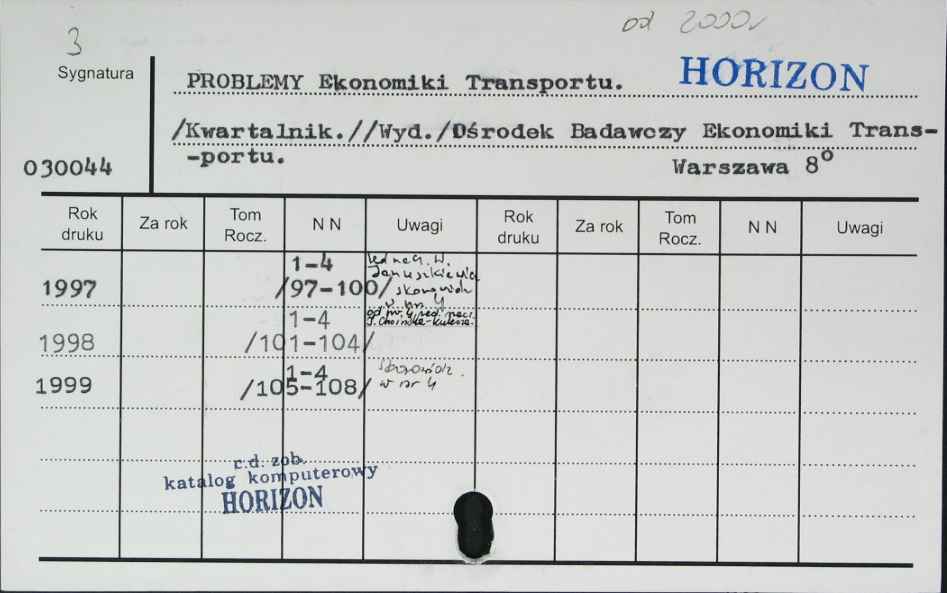 3
od 2000r
Sygnatura
PROBLEMY Ekonomiki Transportu.
HORIZON
/Kwartalnik.//Wyd./Ośrodek Badawczy Ekonomiki Trans-
-portu.
Warszawa 8°
030044
Rok druku Za rok Tom Rocz. N N Uwagi Rok druku Za rok Tom Rocz. N N Uwagi
1-4
1997 /97-100/
Januszkiewicz
skorowidz
w nr 4
1-4
od nr 4 red. nacz.
1998 /101-104/
1-4
1999 /105-108/
skorowidz
w nr 4
c.d. zob.
katalog komputerowy
HORIZON